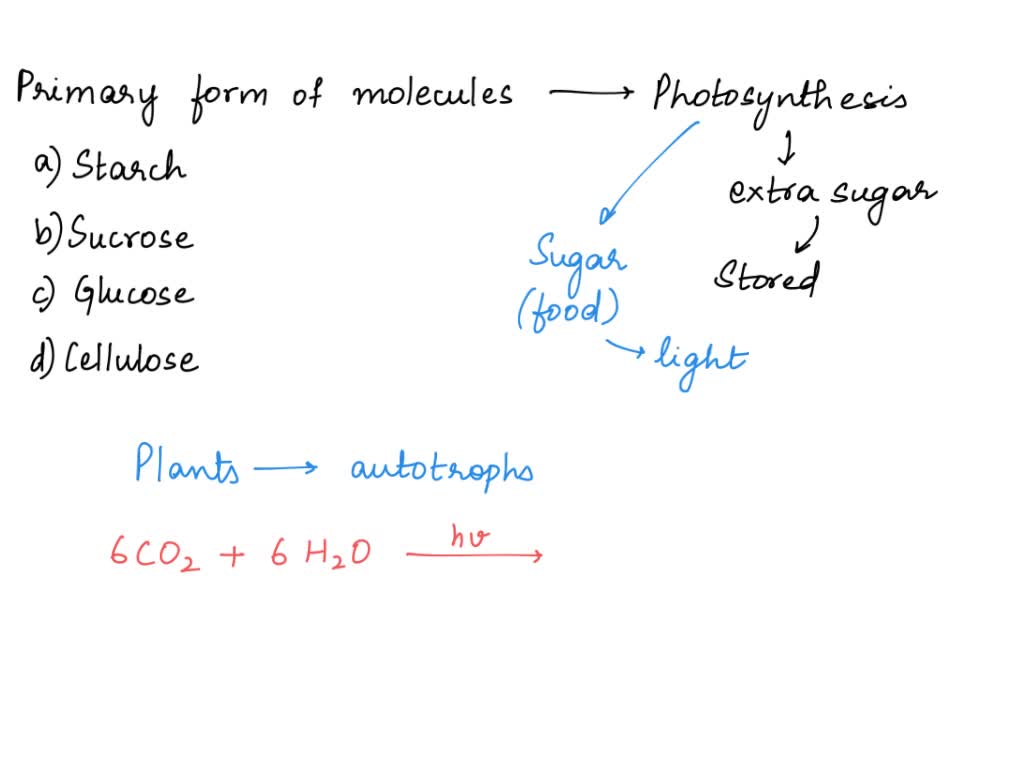 Primary form of molecules ⟶ Photosynthesis
a) Starch
b) Sucrose
c) Glucose
d) Cellulose
↓
extra sugar
↓
Stored
Sugar
(food)
→ light
Plants ⟶ autotrophs
6CO₂ + 6 H₂O ⟶ hν